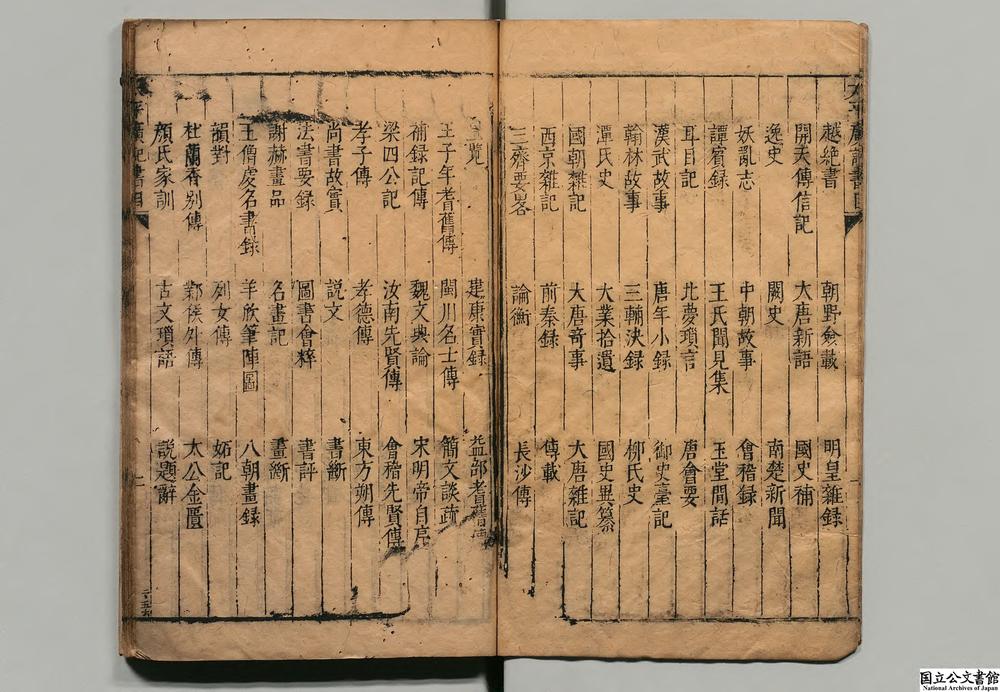 太平廣記書目
越絶書　朝野僉載　明皇雜録
開天傳信記　大唐新語　國史補
逸史　闕史　南楚新聞
妖亂志　中朝故事　會稽録
譚賓録　王氏聞見集　玉堂間話
耳目記　北夢瑣言　唐會要
漢武故事　唐年小録　御史臺記
翰林故事　三輔決録　柳氏史
潭氏史　大業拾遺　國史異纂
國朝雜記　大唐奇事　大唐雜記
西京雜記　前秦録　傳載
三齊要畧　論衡　長沙傳
覽　建康實録　益部耆舊傳
王子年耆舊傳　閩川名士傳　簡文談疏
補録記傳　魏文典論　宋明帝自序
梁四公記　汝南先賢傳　會稽先賢傳
孝子傳　孝德傳　東方朔傳
尚書故實　説文　書斷
法書要録　圖書會粹　書評
謝赫畫品　名畫記　畫斷
王僧虔名書録　羊欣筆陣圖　八朝畫録
韻對　列女傳　妬記
杜蘭香别傳　鄴侯外傳　太公金匱
顔氏家訓　古文瑣語　説題辭
國立公文書館
National Archives of Japan